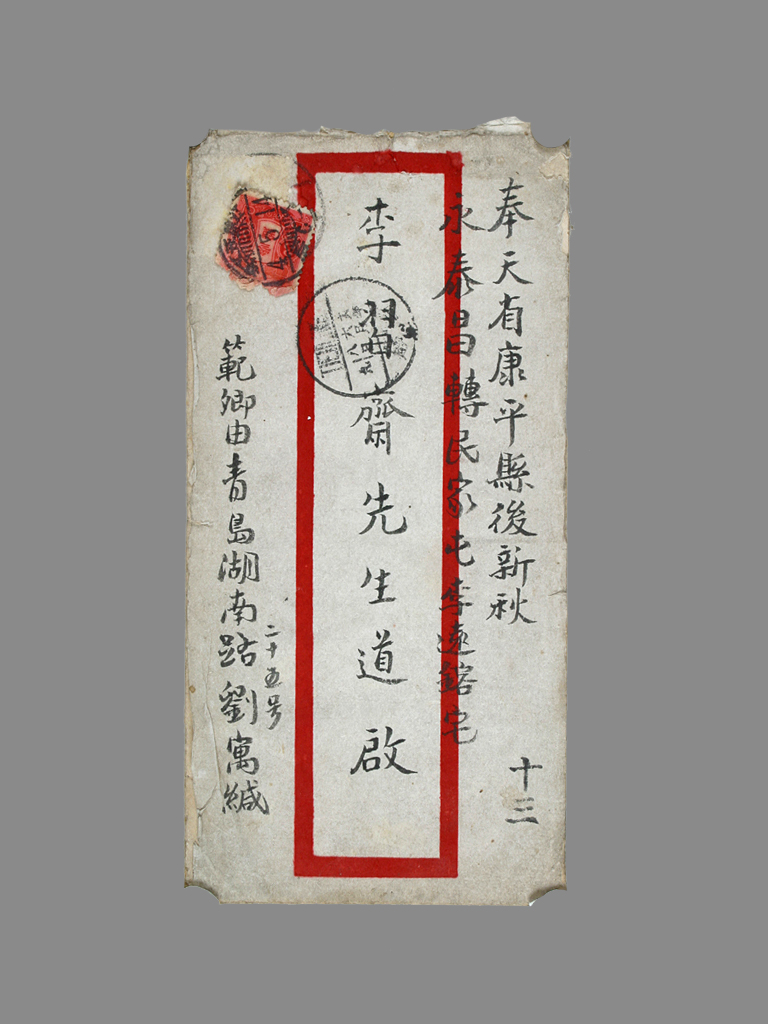 奉天省康平縣後新秋
永泰昌轉民家屯李遠鎔宅
十三
李習齋先生道啟
範卿由青島湖南路劉寓緘
二十五号